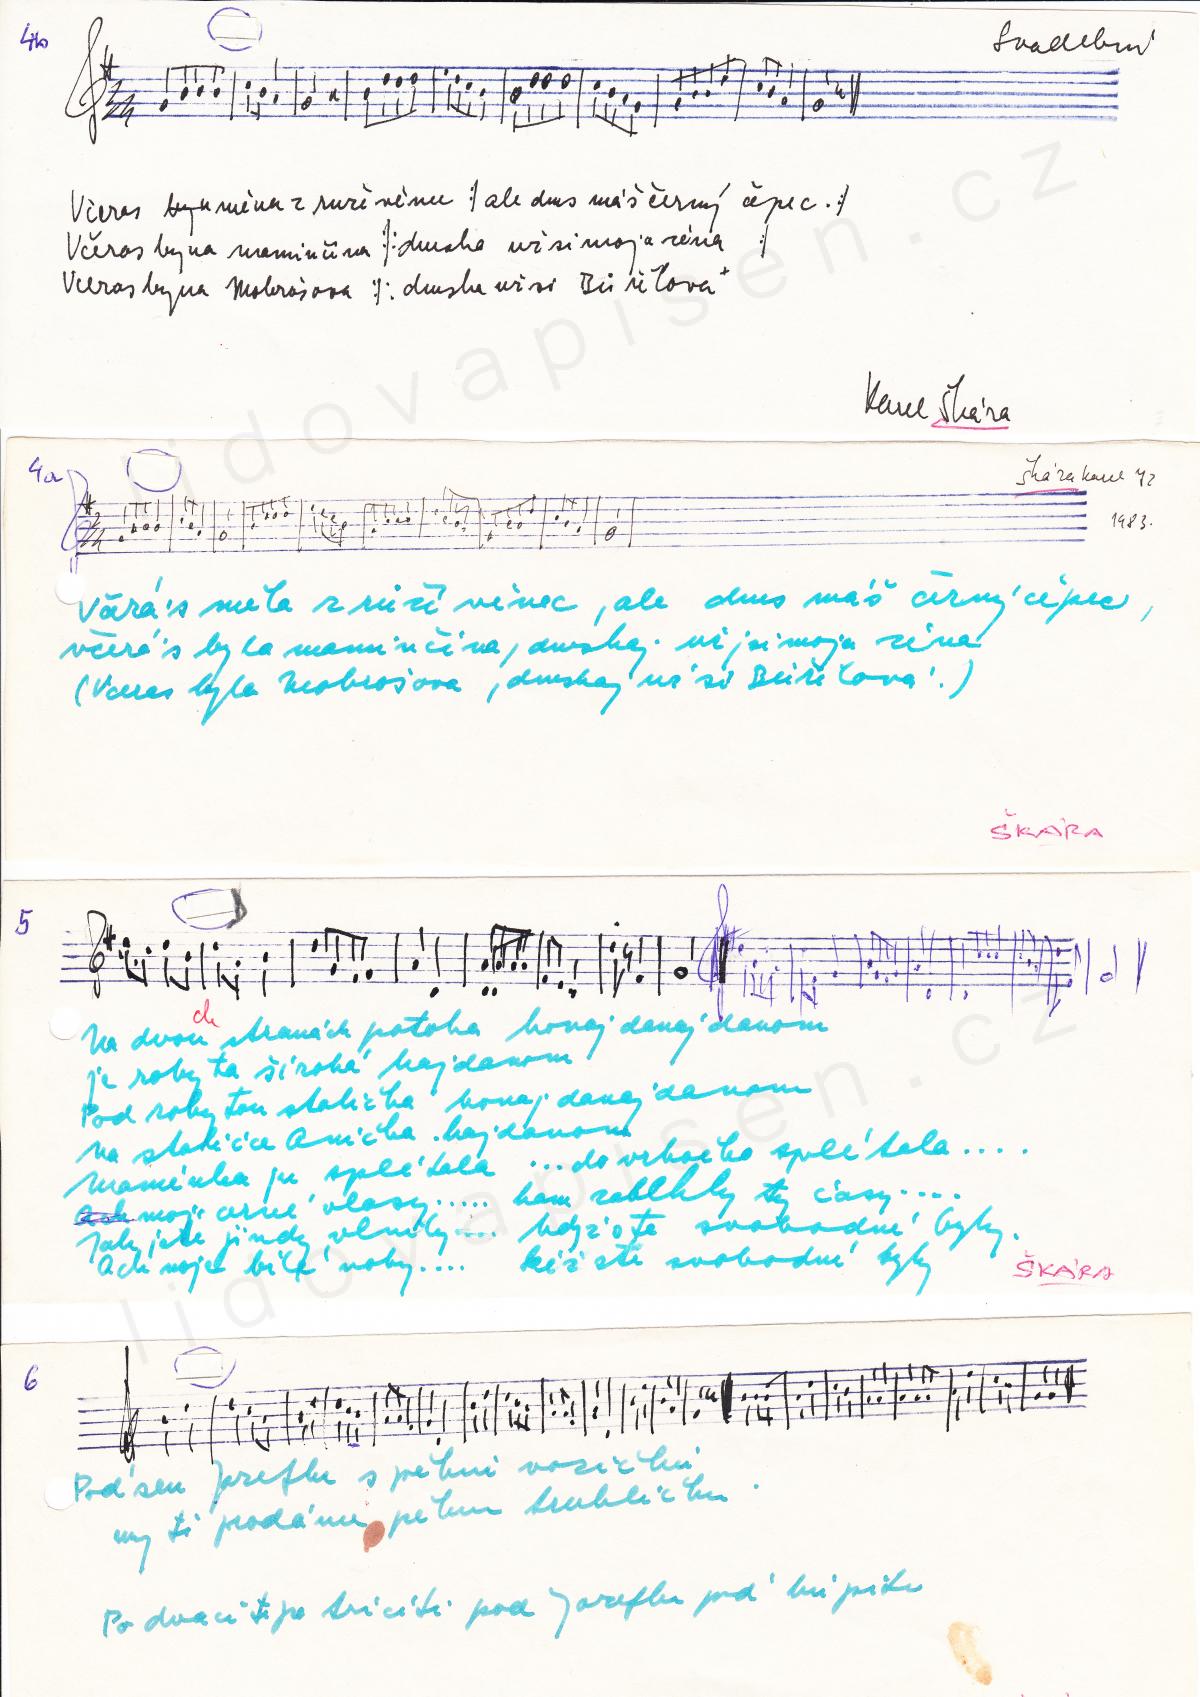 4b
Svadební
Včeras měna z ruží věnec :/ ale dnes máš černý čepec. :/
Včeras byna maminčina /: dneska už si moja žena :/
Včeras byna Mokrošova :/: dneska už si Buřičova
Karel Škára
4a
Škára Karel 72
1983.
Včerá's měla z růží věnec, ale dnes máš černý čepec,
včerá's byla maminčina, dneskaj už jsi moja žena
(Včeras byla Mokrošova, dneskaj už si Buřičova.)
ŠKÁRA
5
ch
Na dvou stranách potoka honaj danaj danom
je rokyta široká hajdanom
Pod rokytou stolička honaj danaj danom
Na stoličce Anička hajdanom
Maměnka ju splétala ... do vrkočka splétala ....
moje černé vlasy ..... kam zablkly ty časy ....
Jaky jste jindy vlnily ... když ste svobodné byly.
Ach moje bílé nohy .... kéž ste svobodné byly
ŠKÁRA
6
Pod' sem Jozefku s pěknú vozičkú
my ti prodáme pěknu truhličku.
Po dvaciti po triciti pod Jozefku pod' kúpiti
lidovapisen.cz
lidovapisen.cz